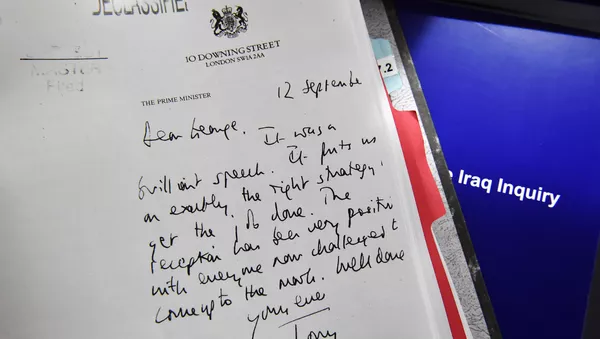 DECLASSIFIED
Filed
10 DOWNING STREET
LONDON SW1A 2AA
THE PRIME MINISTER
12 September
Dear George.
It was a
brilliant speech. It puts us
on exactly the right strategy,
get the job done. The
reception has been very positive
with everyone now challenged to
come up to the mark. Well done
Yours ever
Tony
7.2
Iraq Inquiry